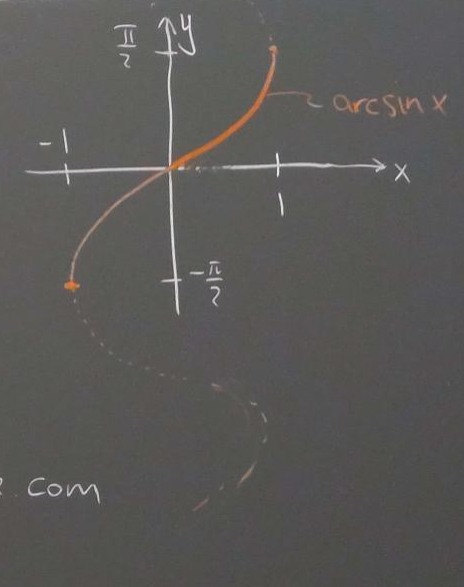 π/2 y
arcsin x
-1
x
1
-π/2
.com